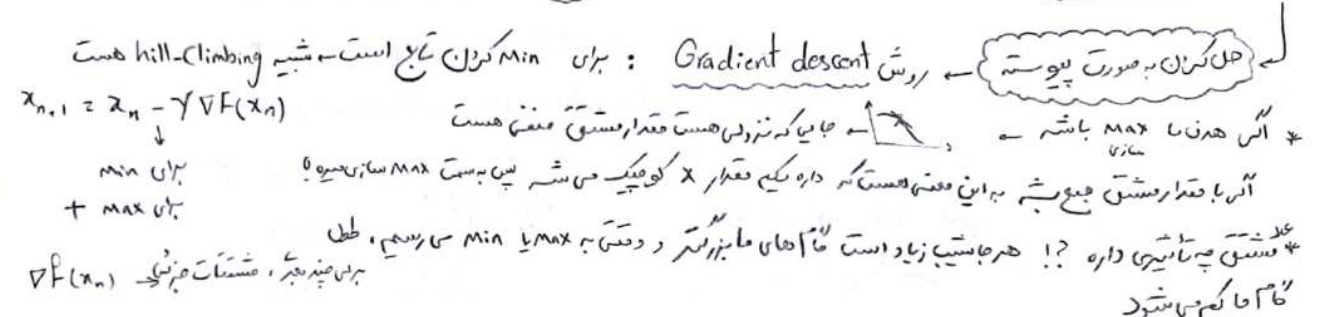 حل کردن به صورت پیوسته ← روش Gradient descent : برای Min کردن تابع است → شبیه hill-Climbing هست
x_{n+1} = x_n - γ∇F(x_n)
↓
برای min
برای max +
* اگر هدف ما max سازی باشه ← جایی که نزولی هست مقدار مشتق منفی هست
اگر با مقدار مشتق جمع بشه به این معنی هست که داره میگیم مقدار x کوچیک می شه پس به سمت Max سازی میره!
* مشتق چه تأثیری داره ?! هر جا شیب زیاد است گام های ما بزرگتر و وقتی به max یا min می رسیم، طول
گام ما کم می شود
∇f(x_n) → برای چند بعدی، مشتقات جزئی